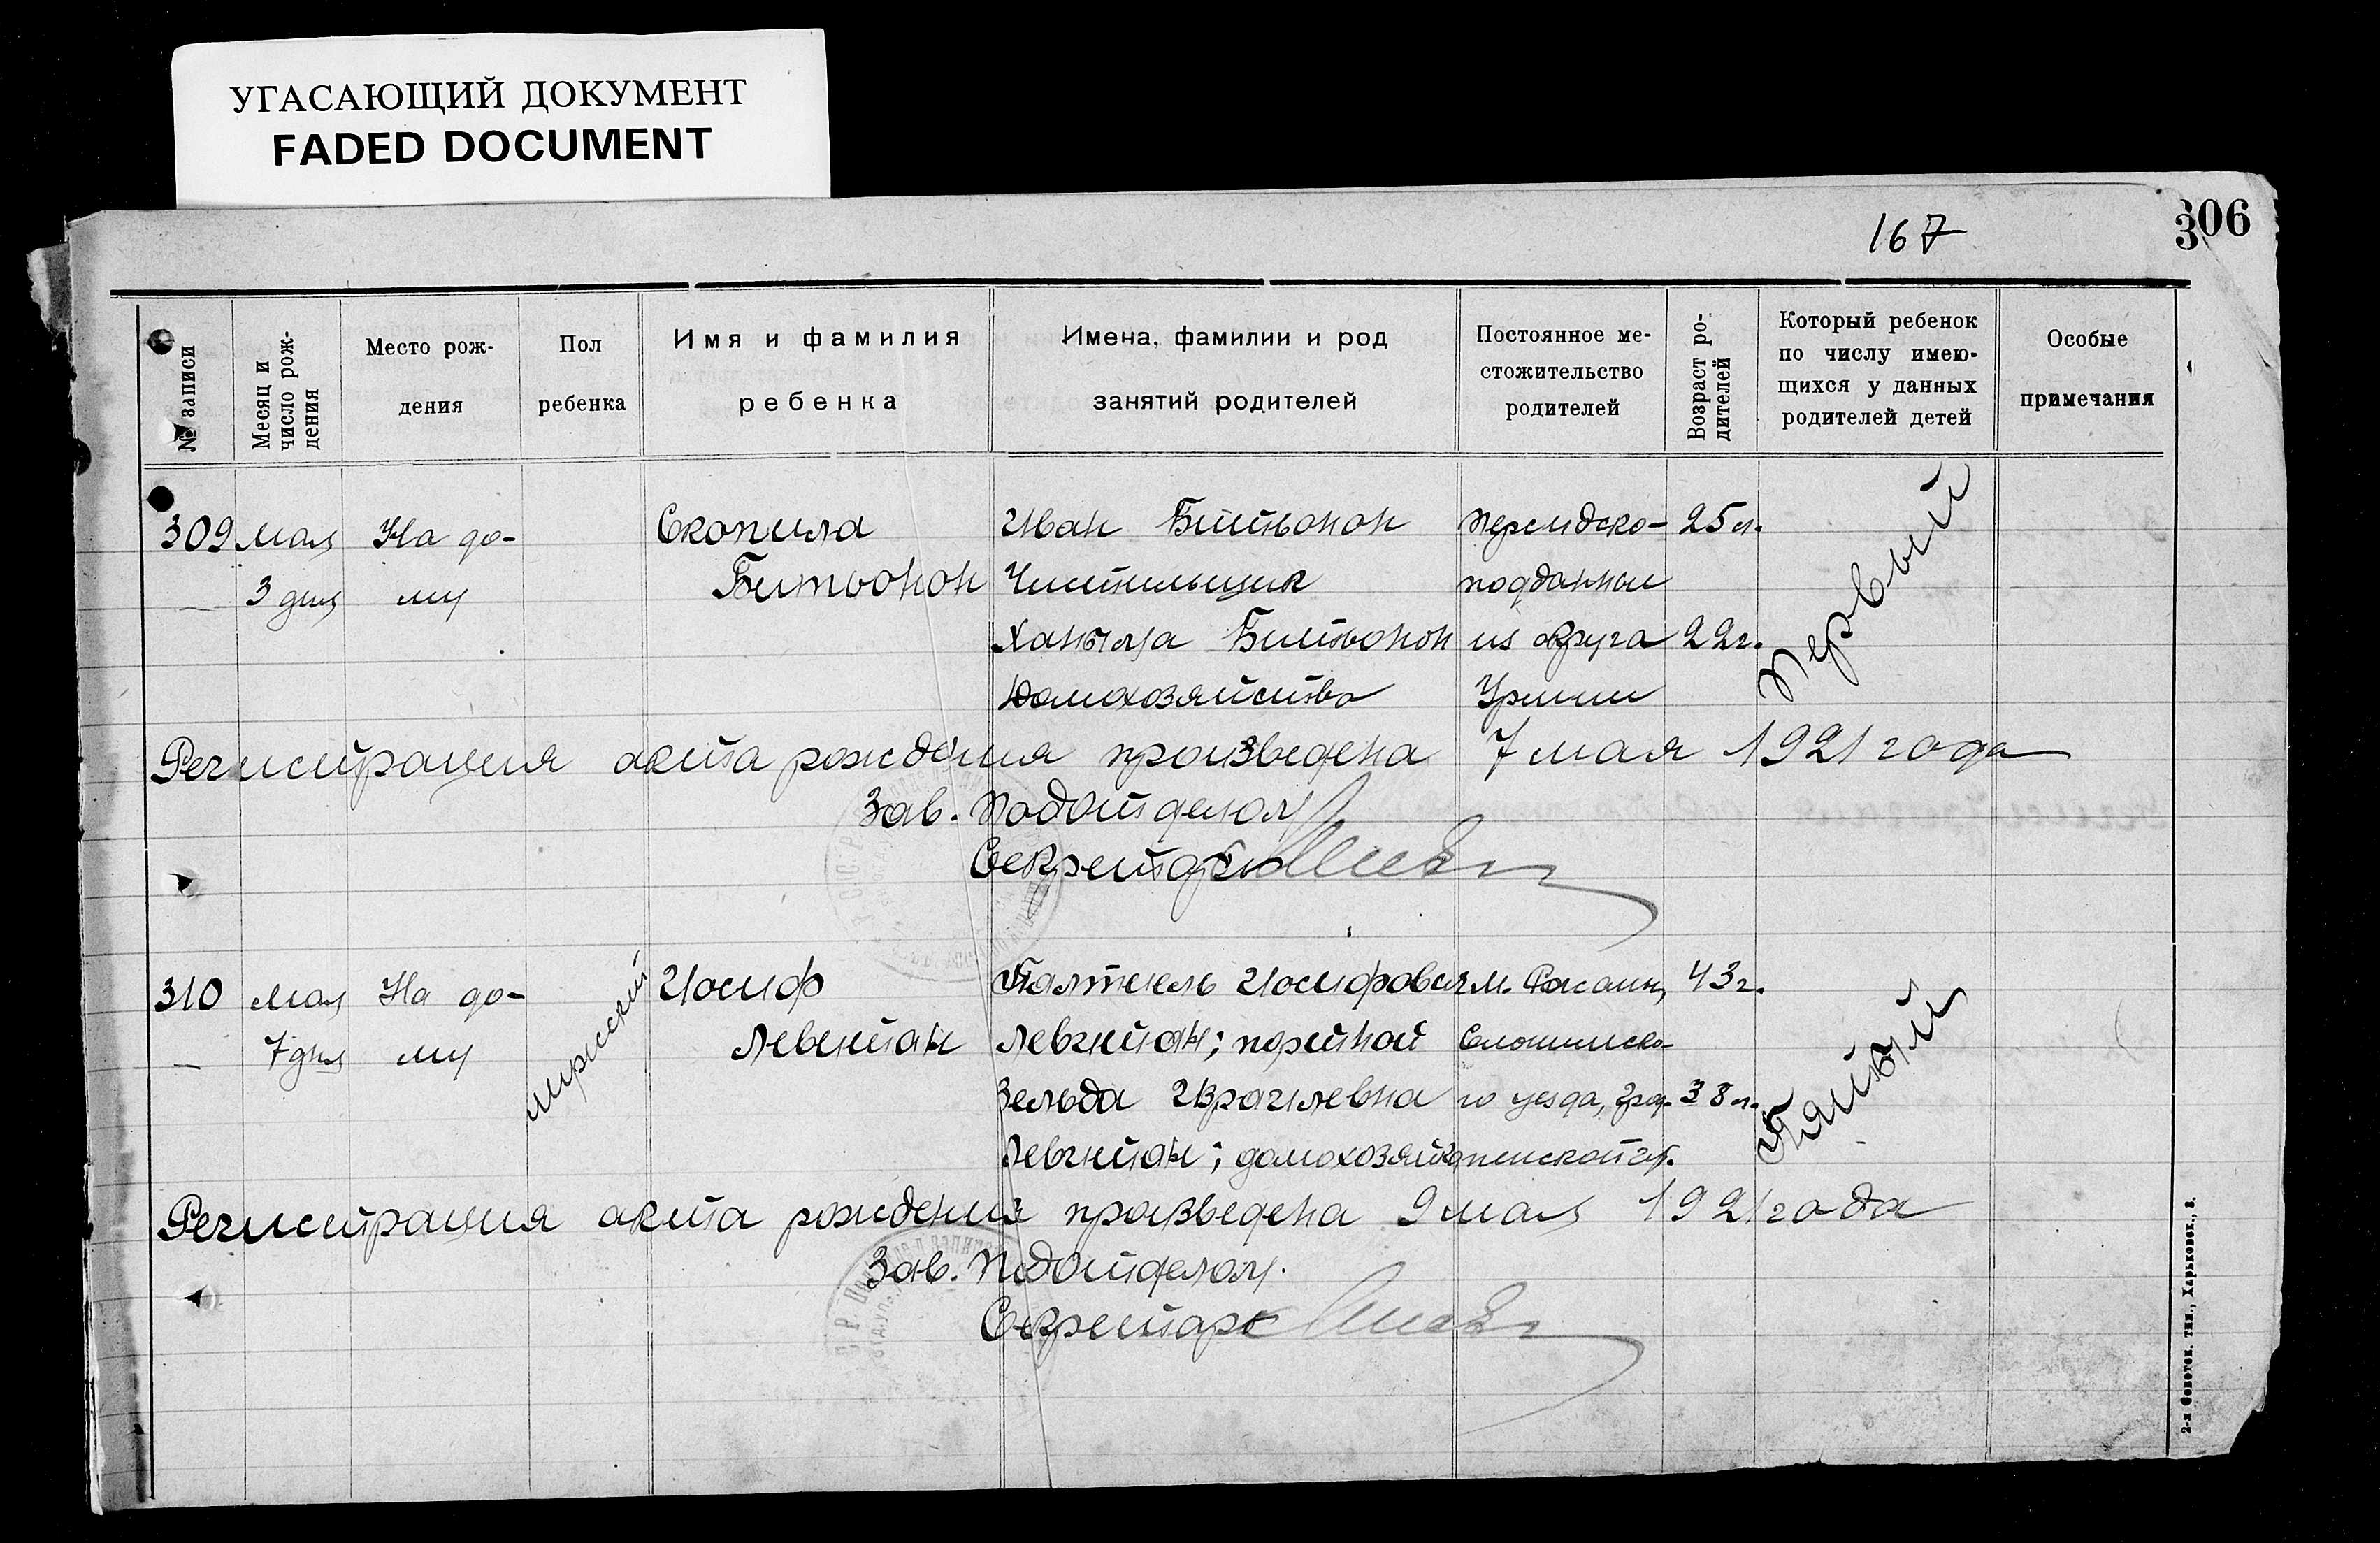 УГАСАЮЩИЙ ДОКУМЕНТ
FADED DOCUMENT
167
306
№ записи
Месяц и число рождения
Место рождения
Пол ребенка
Имя и фамилия ребенка
Имена, фамилии и род занятий родителей
Постоянное местожительство родителей
Возраст родителей
Который ребенок по числу имеющихся у данных родителей детей
Особые примечания
309 мая На до- Скопила Иван Битьонон персидско- 25 л.
— 3 дня му Битьонон Чистильщик подданные
Ханыма Битьонон из округа 22 г.
Домохозяйство Урмии
Первый
Регистрация акта рождения произведена 7 мая 1921 года
Зав. Подотделом
Секретарь
310 мая На до- мужской Иосиф Палтиель Иосифович м. Рожаны, 43 г.
— 7 дня му Левентан Левентан; портной Слонимско-
Зельда Израилевна го уезда, Грод- 38 л.
Левентан; домохозяйка ненской губ.
Пятый
Регистрация акта рождения произведена 9 мая 1921 года
Зав. Подотделом.
Секретарь
2-я Советск. тип., Харьковск., 8.